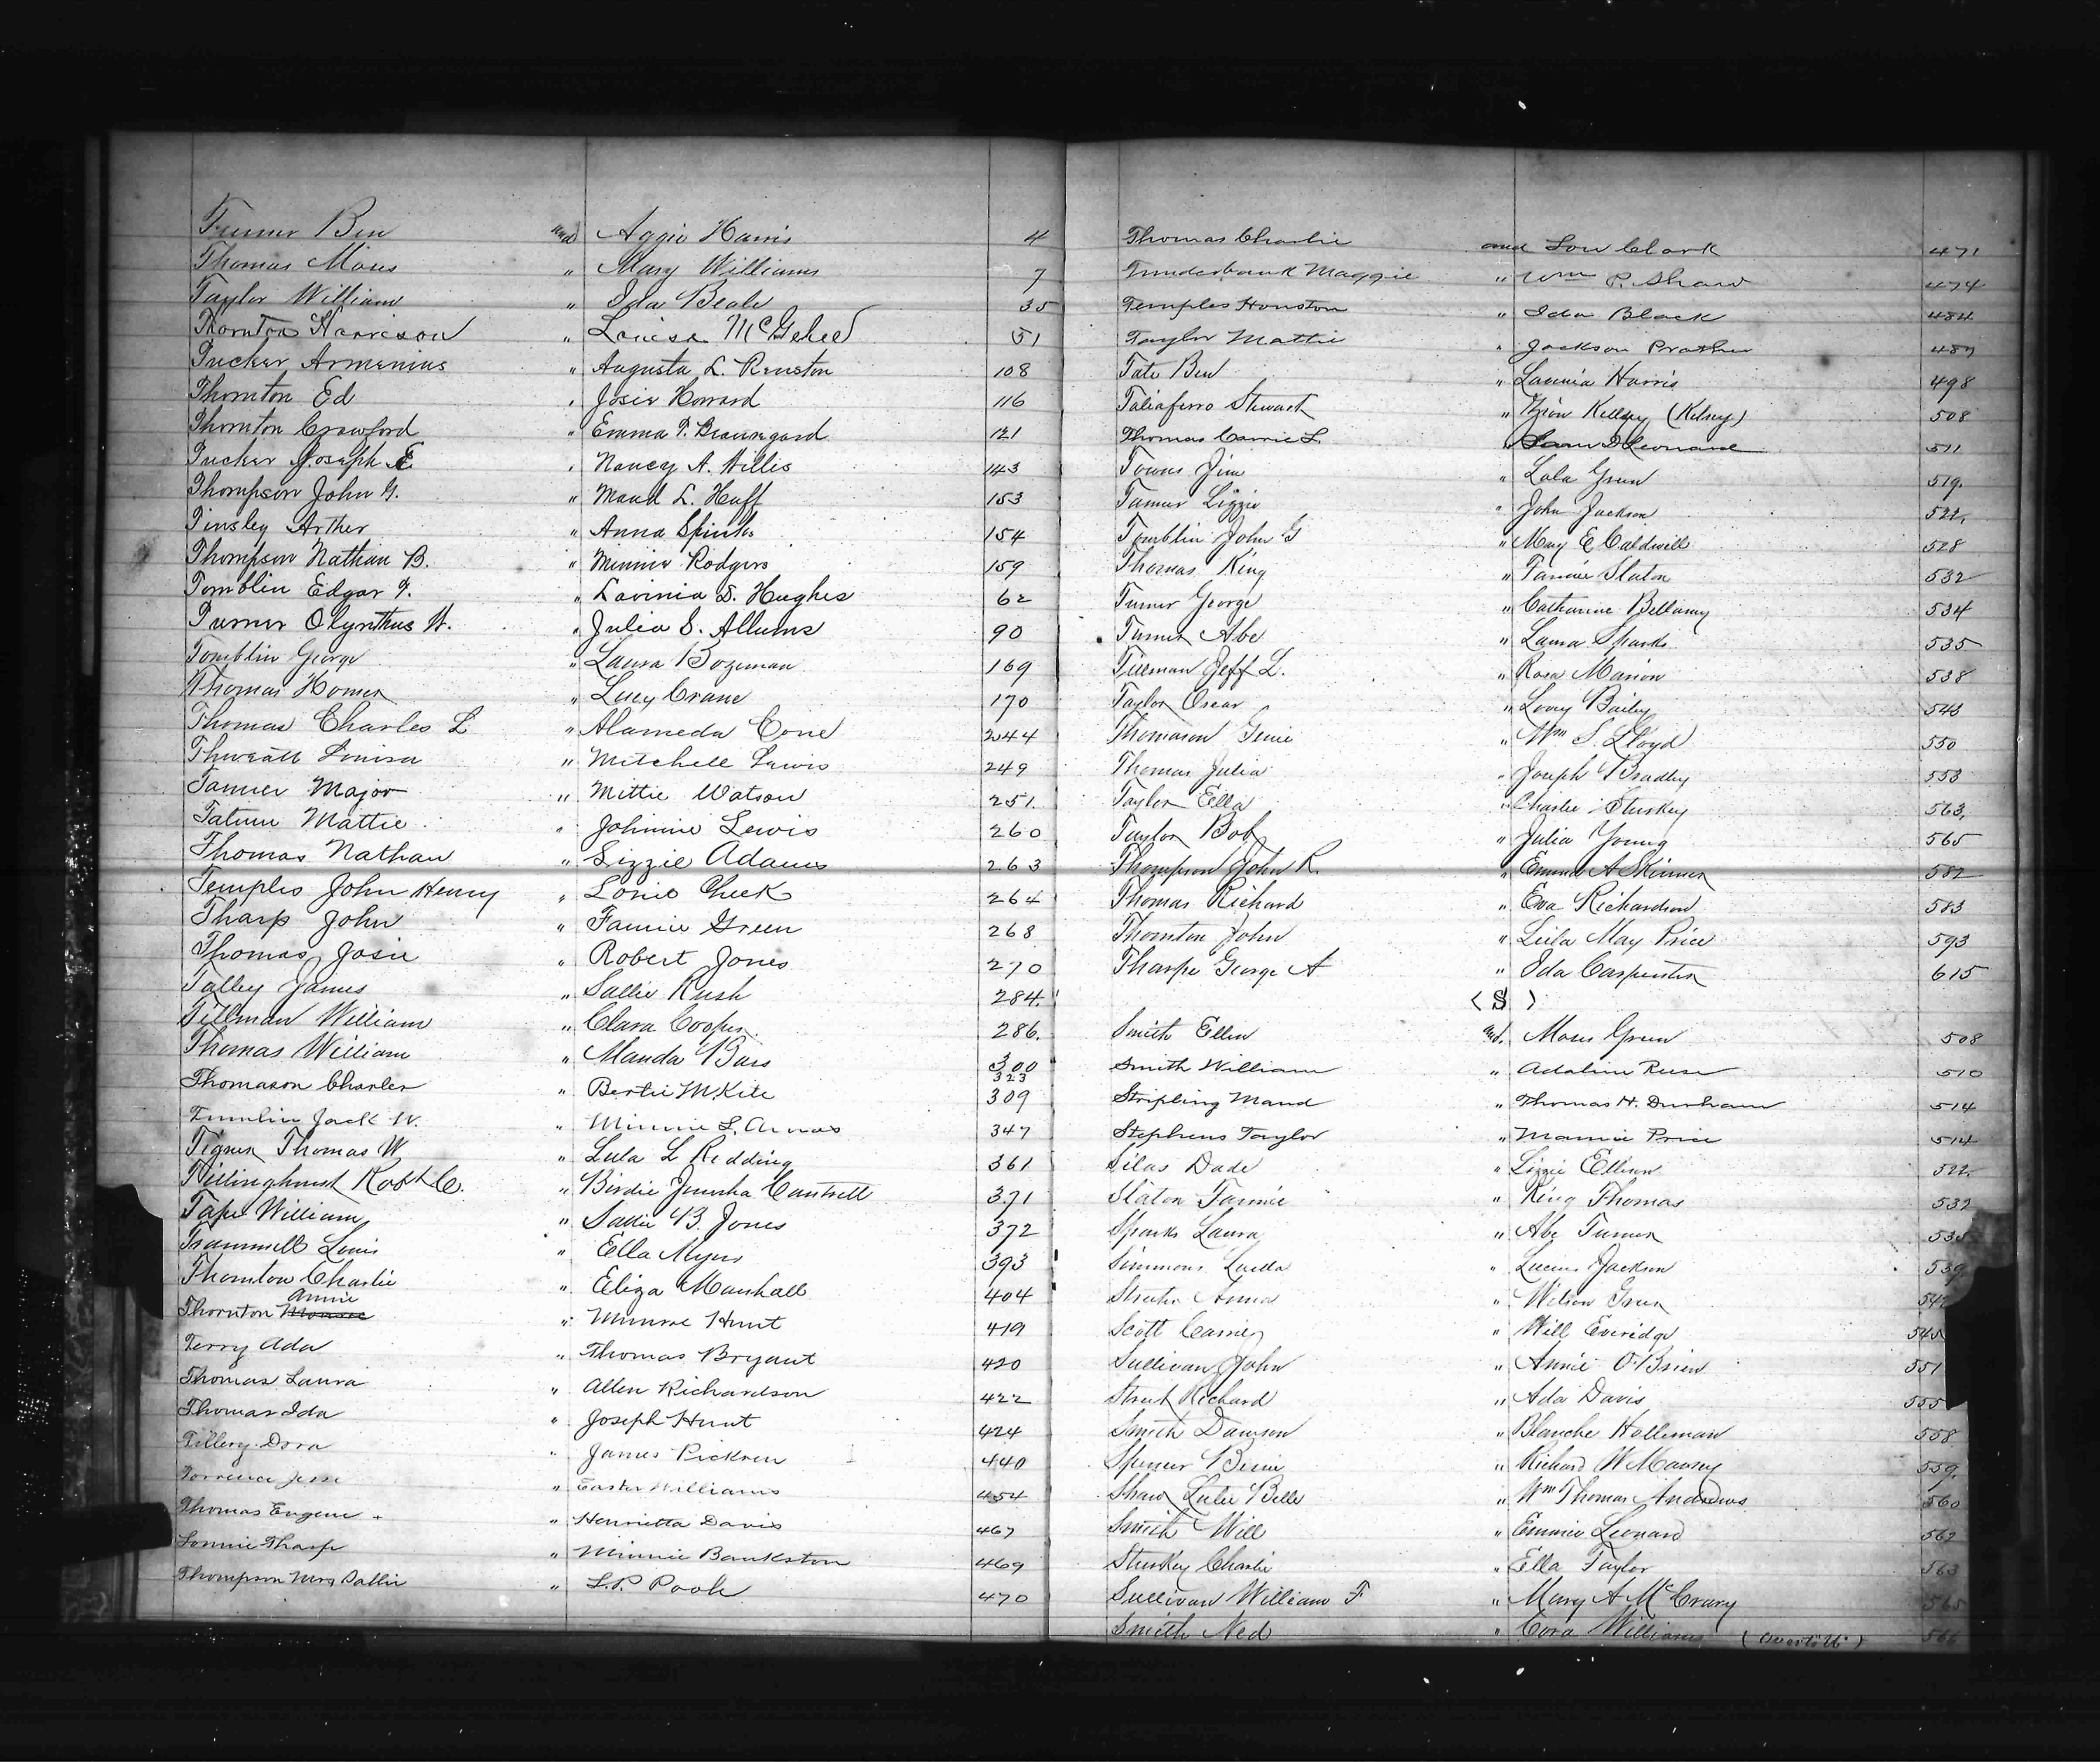 Turner Ben and Aggie Harris 4
Thomas Moses " Mary Williams 7
Taylor William " Ida Beale 35
Thornton Harrison " Louisa McGehee 51
Tucker Armenius " Augusta L. Renston 108
Thornton Ed " Josie Howard 116
Thornton Crawford " Emma P. Beauregard 121
Tucker Joseph E " Nancy A. Willis 143
Thompson John G. " Maud L. Huff 153
Tinsley Arther " Anna Spinks 154
Thompson Nathan B. " Minnie Rodgers 159
Tomblin Edgar F. " Lavinia D. Hughes 62
Turner Olynthus W. " Julia S. Allums 90
Tomblin George " Laura Bozeman 169
Thomas Homer " Lucy Crane 170
Thomas Charles L " Alameda Cone 244
Thweatt Louisa " Mitchell Lewis 249
Tanner Major " Mittie Watson 251.
Tatum Mattie " Johnnie Lewis 260
Thomas Nathan " Lizzie Adams 263
Temples John Henry " Lonie Cheek 264
Tharp John " Fannie Green 268
Thomas Josie " Robert Jones 270
Talley James " Sallie Rush 284.
Tillman William " Clara Cooper 286.
Thomas William " Manda Bass 300 323
Thomason Charles " Bertie McKite 309
Tumlin Jack W. " Minnie L. 347
Tigner Thomas W " Lula L Redding 361
Tillinghurst Robt C. " Birdie Cantrell 371
Tape William " Sallie B. Jones 372
Trammell Louis " Ella Myers 393
Thornton Charlie " Eliza Marshall 404
Thornton Annie " Monroe Hunt 419
Terry Ada " Thomas Bryant 420
Thomas Laura " Allen Richardson 422
Thomas Ida " Joseph Hunt 424
Tillery Dora " James Pickren 440
Torrence Jesse " Easter Williams 454
Thomas Eugene " Henrietta Davis 467
Lonnie Tharp " Minnie Bankston 469
Thompson Mrs Sallie " L.P. Poole 470
Thomas Charlie and Lou Clark 471
Tunderbunk Maggie " Wm P. Shaw 474
Temples Houston " Ida Black 484
Taylor Mattie " Jackson Prather 487
Tate Ben " Launia Harris 498
Taliaferro Stewart " Zion Kellsey (Kelsey) 508
Thomas Carrie L. " Sam D Leonard 511
Towns Jim " Lula Green 519.
Turner Lizzie " John Jackson 522.
Tomblin John G " May E Caldwell 528
Thomas King " Fannie Slaton 532
Turner George " Catharine Bellamy 534
Turner Abe " Laura Sparks 535
Tillman Jeff L. " Rosa Marion 538
Taylor Oscar " Lovey Bailey 543
Thomason Genie " Wm S. Lloyd 550
Thomas Julia " Joseph Bradley 553
Taylor Ella " Charlie Sturkey 563.
Taylor Bob " Julia Young 565
Thompson John R. " Emma A Skinner 582
Thomas Richard " Eva Richardson 583
Thornton John " Leila May Price 593
Tharpe George A " Ida Carpenter 615
< S >
Smith Ellen and. Moses Green 508
Smith William " Adaline Reese 510
Stripling Maud " Thomas H. Durham 514
Stephens Taylor " Mamie Price 514
Silas Dade " Lizzie Ellison 522.
Slaton Fannie " King Thomas 532
Sparks Laura " Abe Turner 535
Simmons Luella " Lucius Jackson 539.
Streeter Anna " Wilson Green
Scott Carrie " Will Everidge 545
Sullivan John " Annie O'Brien 551
Street Richard " Ada Davis 555
Smith Dawson " Blanche Holleman 558
Spencer Bessie " Richard W Mausey 559.
Shaw Lula Belle " Wm Thomas Andrews 560
Smith Will " Emmie Leonard 562
Sturkey Charlie " Ella Taylor 563
Sullivan William F " Mary A McCrary 565
Smith Ned " Cora Williams 566